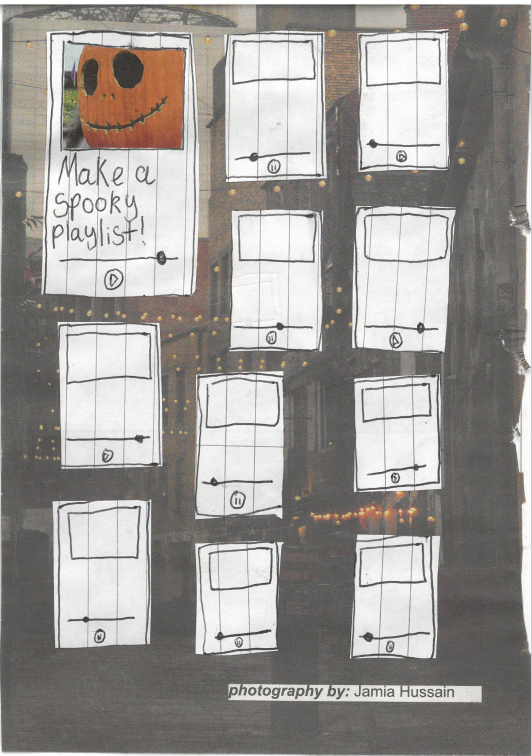 Make a
Spooky
playlist!
photography by: Jamia Hussain